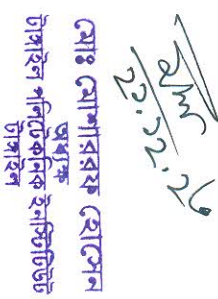 মোঃ মোশাররফ হোসেন
অধ্যক্ষ
টাঙ্গাইল পলিটেকনিক ইনস্টিটিউট
টাঙ্গাইল